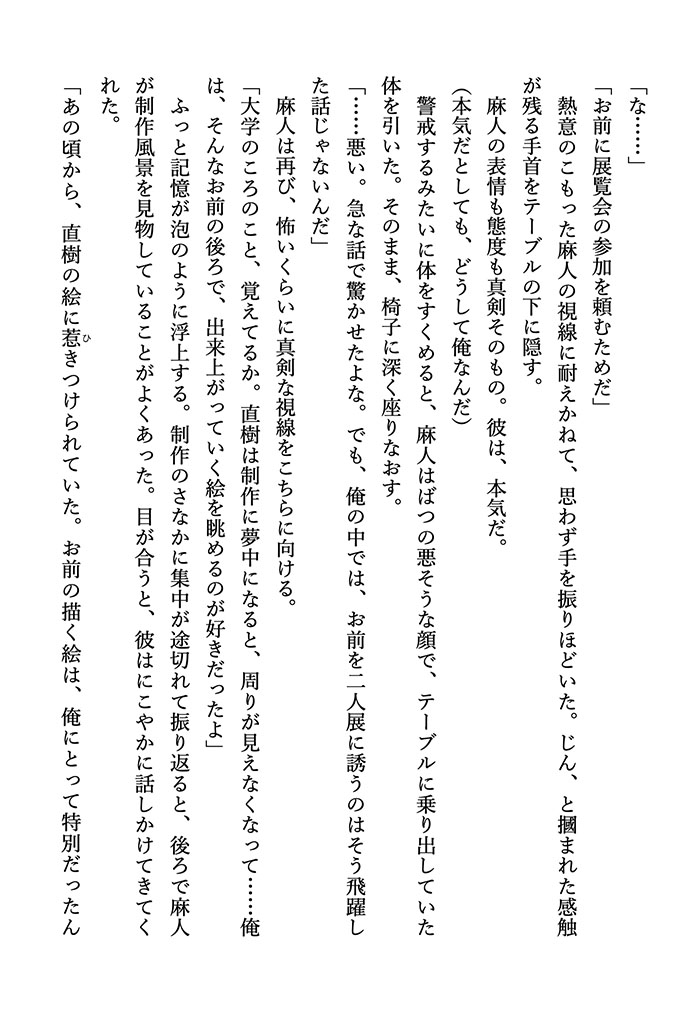 「な……」
「お前に展覧会の参加を頼むためだ」
　熱意のこもった麻人の視線に耐えかねて、思わず手を振りほどいた。じん、と摑まれた感触
が残る手首をテーブルの下に隠す。
　麻人の表情も態度も真剣そのもの。彼は、本気だ。
（本気だとしても、どうして俺なんだ）
　警戒するみたいに体をすくめると、麻人はばつの悪そうな顔で、テーブルに乗り出していた
体を引いた。そのまま、椅子に深く座りなおす。
「……悪い。急な話で驚かせたよな。でも、俺の中では、お前を二人展に誘うのはそう飛躍し
た話じゃないんだ」
　麻人は再び、怖いくらいに真剣な視線をこちらに向ける。
「大学のころのこと、覚えてるか。直樹は制作に夢中になると、周りが見えなくなって……俺
は、そんなお前の後ろで、出来上がっていく絵を眺めるのが好きだったよ」
　ふっと記憶が泡のように浮上する。制作のさなかに集中が途切れて振り返ると、後ろで麻人
が制作風景を見物していることがよくあった。目が合うと、彼はにこやかに話しかけてきてく
れた。
「あの頃から、直樹の絵に惹ひきつけられていた。お前の描く絵は、俺にとって特別だったん